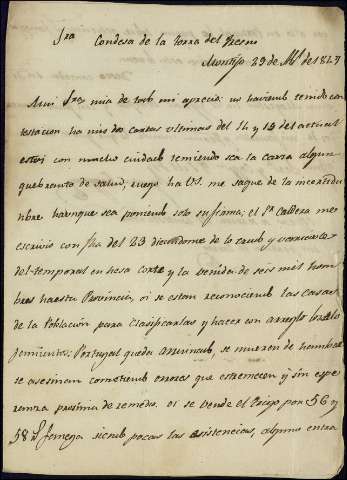 Sra Condesa de la Torra del Fresno
Montijo 29 de Ab.l de 1827
Mui Sra mia de todo mi aprecio: no haviendo tenido con
testacion ha mis dos cartas ultimas del 14 y 19 del actual
estoi con mucho ciudado temiendo sea la causa algun
quebranto de salud, ruego ha VS. me saque de la incertidu
nbre haunque sea poniendo solo su firma; el Sr Caldera me
escrivio con fha del 23 diciendome de lo crudo y
del temporal en hesa corte y la benida de seis mil hom
bres ha esta Provincia, oi se estan reconociendo las casas
de la Poblacion para clasificarlas y hacer con arreglo los alo
jamientos: Portugal queda arruinado, se mueren de hambre
se asesinan cometiendo errores que estremecen y sin espe
ranza proxima de remedio. oi se bende el trigo por 56 y
58 rs fanega siendo pocas las esistencias, alguno entra